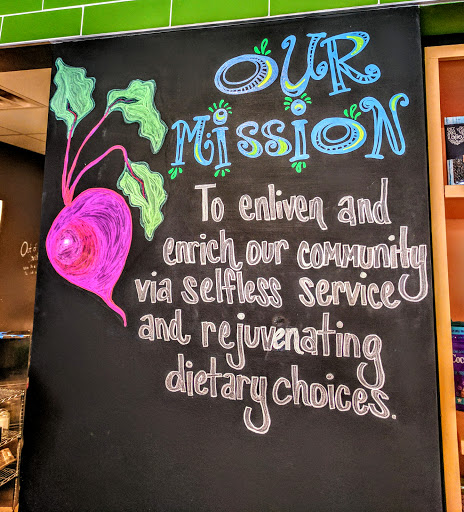 OUR
MISSION
To enliven and
enrich our community
via selfless service
and rejuvenating
dietary choices.